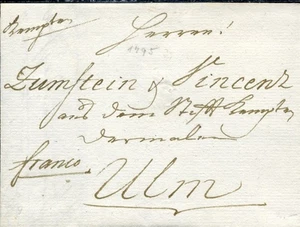 Kempten
Herren!
1795
Zumstein & Vincenz
aus dem Stift Kempten
dermalen
franco
Ulm